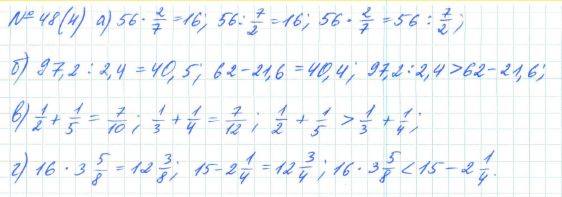 № 48(н) а) 56 · 2/7 = 16; 56 : 7/2 = 16; 56 · 2/7 = 56 : 7/2;
б) 97,2 : 2,4 = 40,5; 62 - 21,6 = 40,4; 97,2 : 2,4 > 62 - 21,6;
в) 1/2 + 1/5 = 7/10; 1/3 + 1/4 = 7/12; 1/2 + 1/5 > 1/3 + 1/4;
г) 16 · 3 5/8 = 12 3/8; 15 - 2 1/4 = 12 3/4; 16 · 3 5/8 < 15 - 2 1/4.